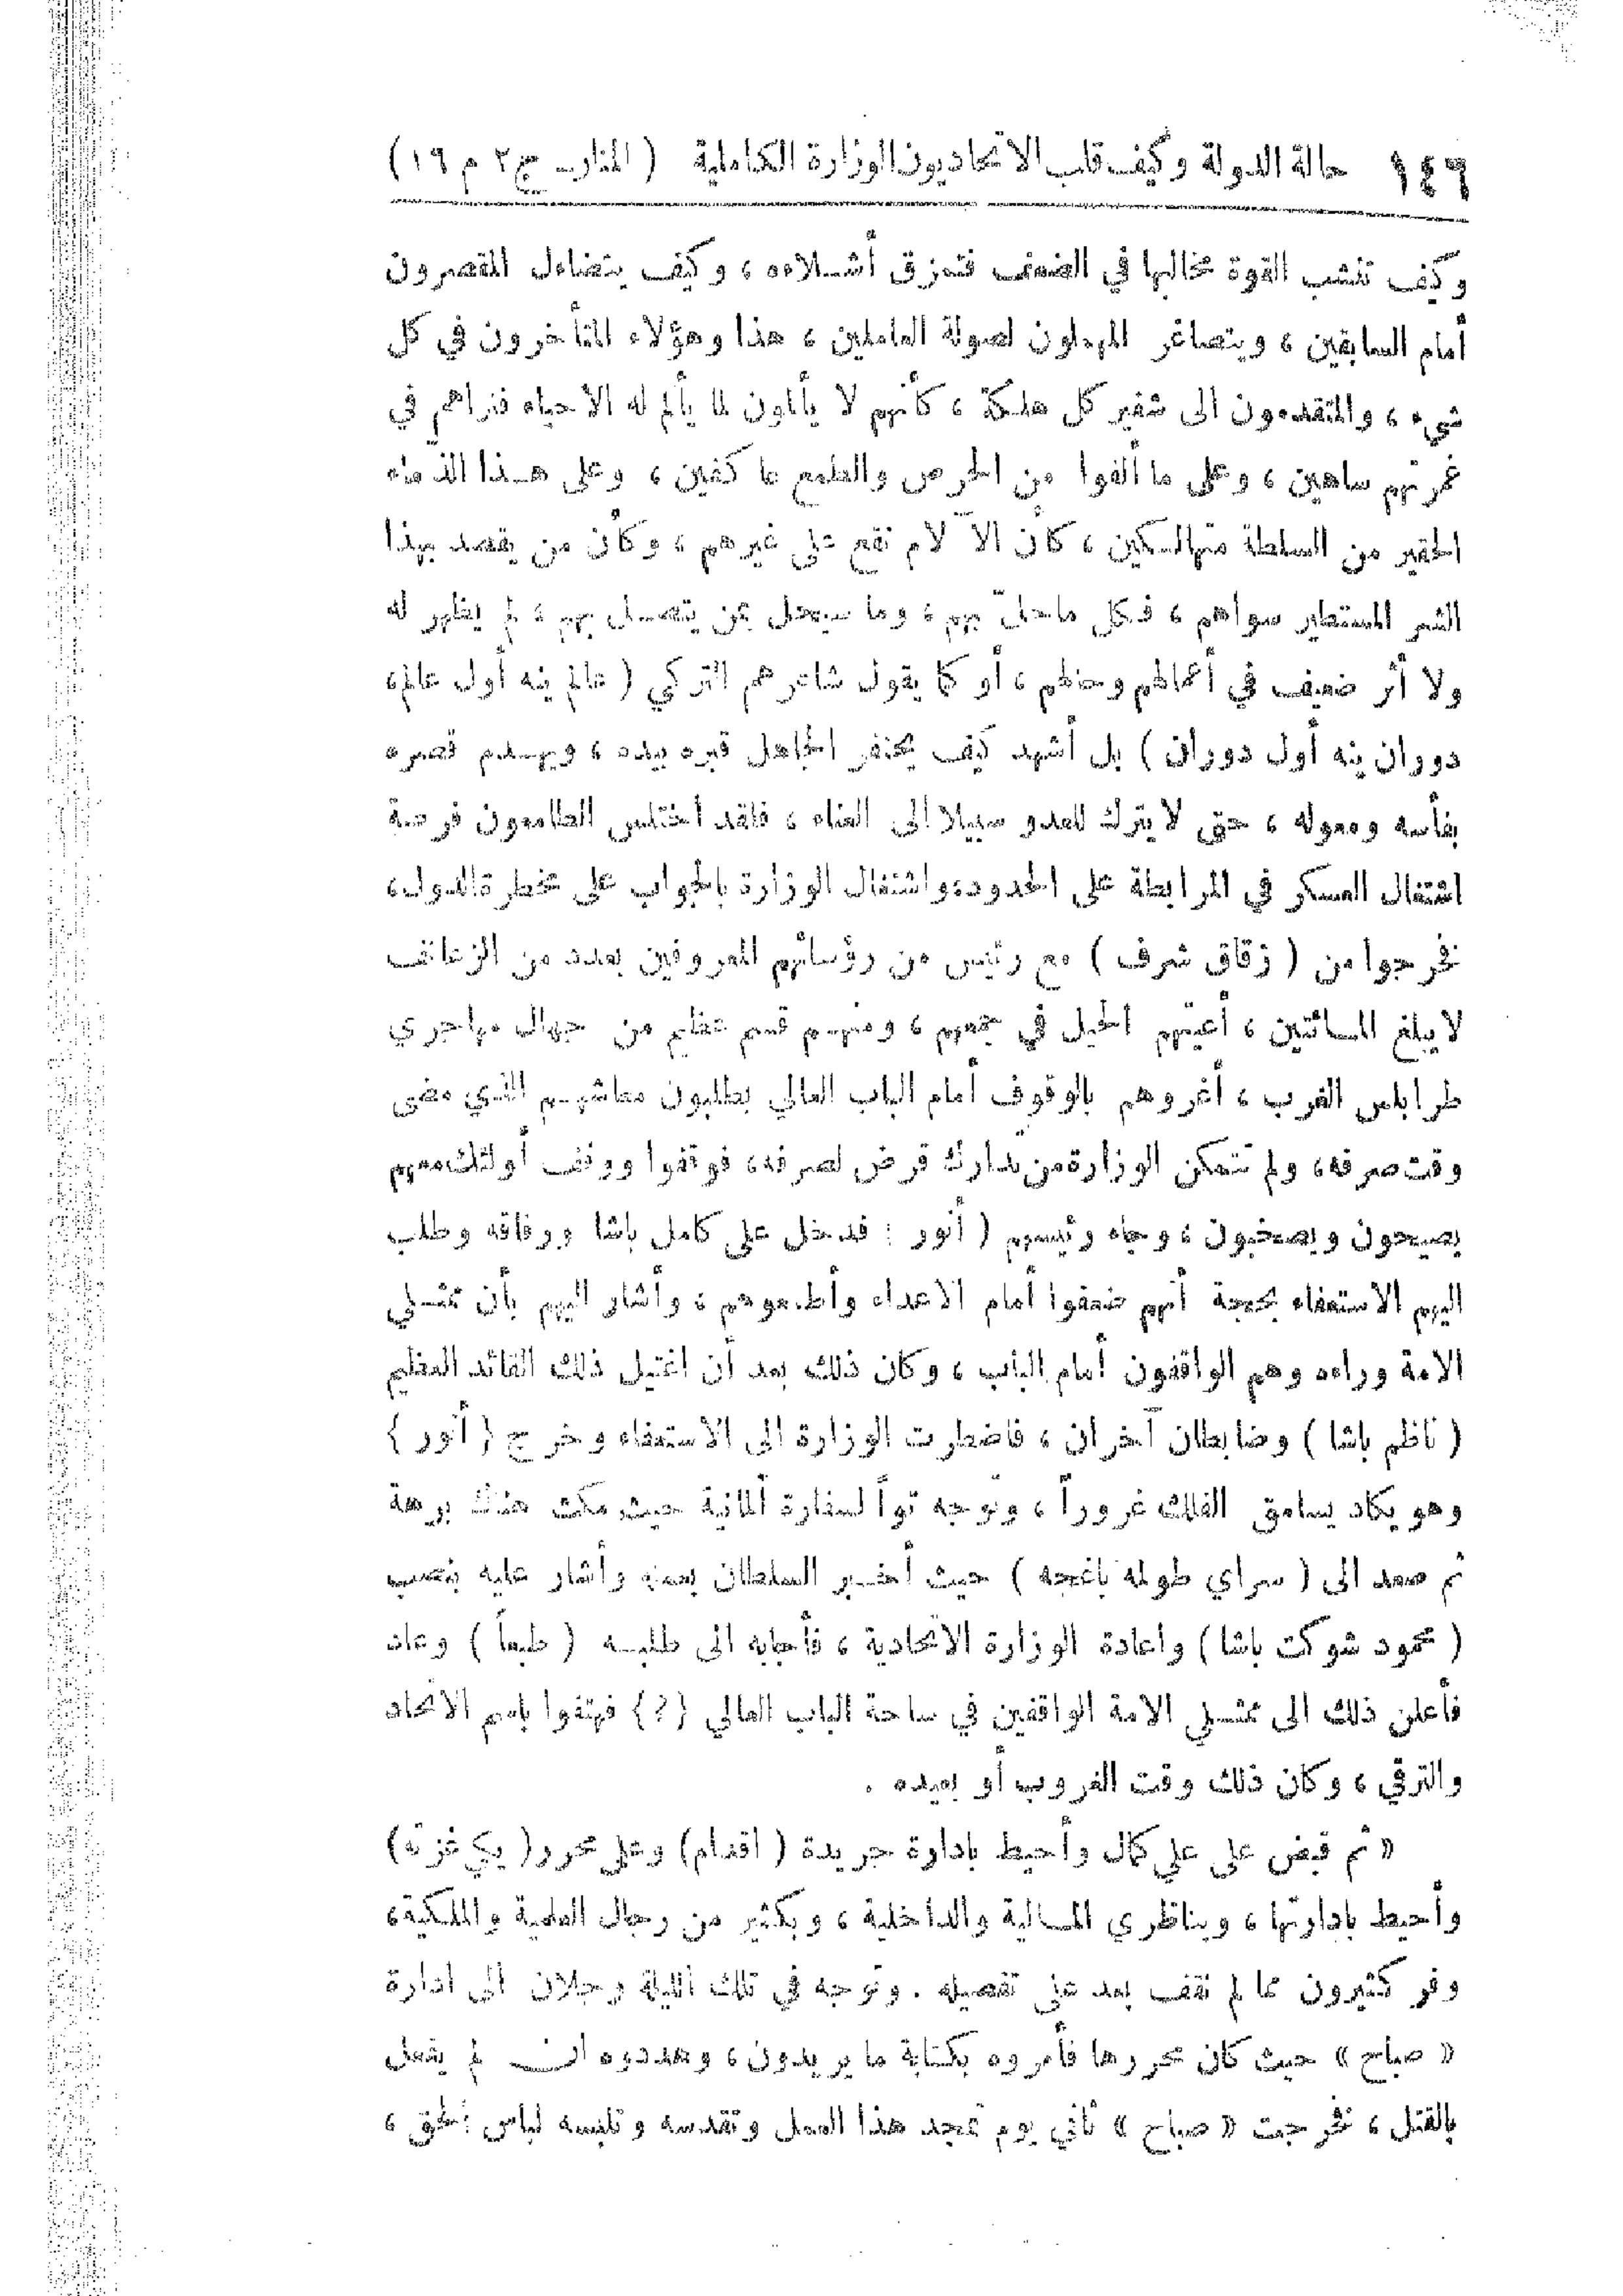 ١٤٦ حالة الدولة وكيف قلب الاتحاديون الوزارة الكاملية ( المنار ـ ج ٢ م ١٦ )
وكيف تنشب القوة مخالبها في الضعف فتمزق أشلاءه ، وكيف يتضاءل المقصرون
أمام السابقين ، ويتصاغر المهملون لصولة العاملين ، هذا وهؤلاء المتأخرون في كل
شيء ، والمتقدمون الى شفير كل هلكة ، كأنهم لا يألمون لما يألم له الاحياء فتراهم في
غمرتهم ساهين ، وعلى ما ألفوا من الحرص والطمع عاكفين ، وعلى هذا الذماء
الحقير من السلطة متهالكين ، كأن الآلام تقع على غيرهم ، وكأن من يقصد بهذا
الشر المستطير سواهم ، فكل ما حلّ بهم ، وما سيحل بمن يتصل بهم ، لم يظهر له
ولا أثر ضعيف في أعمالهم وخطهم ، أو كما يقول شاعرهم التركي ( عالم ينه أول عالم ،
دوران ينه أول دوران ) بل أشهد كيف يحتفر الجاهل قبره بيده ، ويهدم قصره
بفأسه ومعوله ، حتى لا يترك للعدو سبيلا الى العناء ، فلقد أختلس الطامعون فرصة
اشتغال العسكر في المرابطة على الحدود ، واشتغال الوزارة بالجواب على مخطرة الدول ،
نخرجوا من ( زقاق شرف ) مع رئيس من رؤسائهم المعروفين بعدد من الزعانف
لا يبلغ المائتين ، أعيتهم الحيل في جمعهم ، ومنهم قسم عظيم من جهال مهاجري
طرابلس الغرب ، أغروهم بالوقوف أمام الباب العالي يطلبون معاشهم الذي مضى
وقت صرفه ، ولم تتمكن الوزارة من تدارك قرض لصرفه ، فوقفوا ووقف أولئك معهم
يصيحون ويصخبون ، وجاء رئيسهم ( أنور ) فدخل على كامل باشا ورفاقه وطلب
اليهم الاستعفاء بحجة أنهم ضعفوا أمام الاعداء وأطمعوهم ، وأشار اليهم بأن ممثلي
الامة وراءه وهم الواقفون أمام الباب ، وكان ذلك بعد أن اغتيل ذلك القائد العظيم
( ناظم باشا ) وضابطان آخران ، فاضطرت الوزارة الى الاستعفاء وخرج ( أنور )
وهو يكاد يسامق الفلك غروراً ، وتوجه تواً لسفارة ألمانية حيث مكث هناك برهة
ثم صعد الى ( سراي طولمه باغجه ) حيث أخبر السلطان بعمله وأشار عليه بنصب
( محمود شوكت باشا ) واعادة الوزارة الاتحادية ، فأجابه الى طلبه ( طبعاً ) وعاد
فأعلن ذلك الى ممثلي الامة الواقفين في ساحة الباب العالي (؟) فهتفوا باسم الاتحاد
والترقي ، وكان ذلك وقت الغروب أو بعيده .
« ثم قبض على علي كمال وأحيط بادارة جريدة ( اقدام ) وعلى محرر ( يكي غزته )
وأحيط بادارتها ، وبناظري المالية والداخلية ، وبكثير من رجال العلمية والملكية ،
وفر كثيرون مما لم نقف بعد على تفصيله . وتوجه في تلك الليلة رجلان الى ادارة
« صباح » حيث كان محررها فأمروه بكتابة ما يريدون ، وهددوه ان لم يفعل
بالقتل ، نخرجت « صباح » ثاني يوم تمجد هذا العمل وتقدسه وتلبسه لباس الحق ،